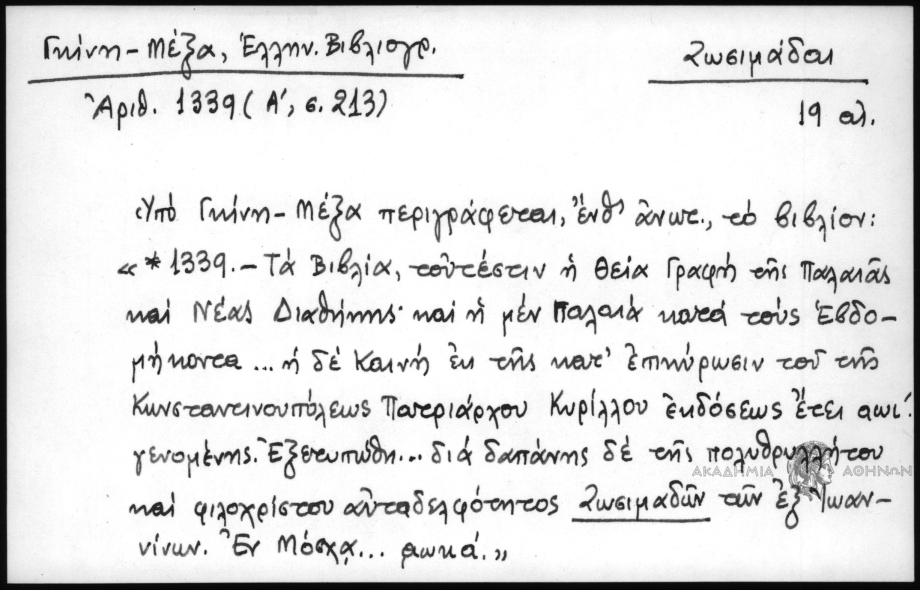 Γκίνη – Μέξα, Ἑλλην. Βιβλιογρ.
Ζωσιμάδαι
Ἀριθ. 1339 (Α', σ. 213)
19 αἰ.
Ὑπό Γκίνη – Μέξα περιγράφεται, ἔνθ' ἄνωτ., τό βιβλίον:
«*1339. – Τά Βιβλία, τοὐτέστιν ἡ Θεία Γραφή τῆς Παλαιᾶς
καί Νέας Διαθήκης· καί ἡ μέν Παλαιά κατά τούς Ἑβδο-
μήκοντα ... ἡ δέ Καινή ἐκ τῆς κατ' ἐπικύρωσιν τοῦ τῆς
Κωνσταντινουπόλεως Πατριάρχου Κυρίλλου ἐκδόσεως ἔτει αωι'.
γενομένης. Ἐξετυπώθη... διά δαπάνης δέ τῆς πολυθρυλλήτου
ΑΚΑΔΗΜΙΑ ΑΘΗΝΩΝ
καί φιλοχρίστου αὐταδελφότητος Ζωσιμαδῶν τῶν ἐξ Ἰωαν-
νίνων. Ἐν Μόσχᾳ... αωκά.»